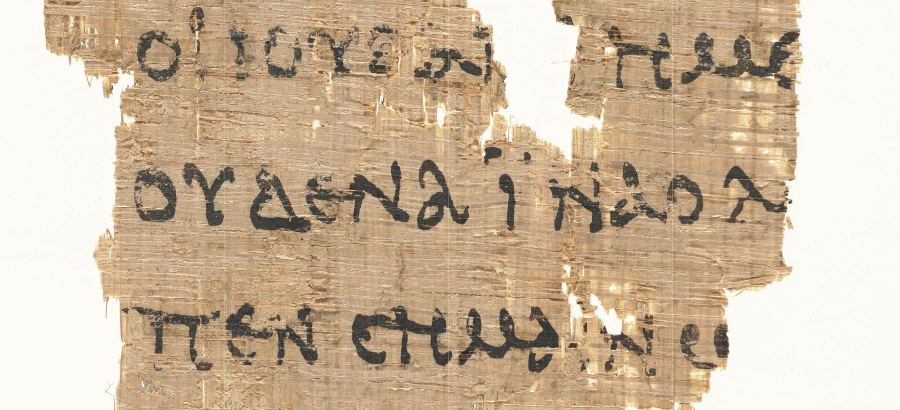 ΟΙ ΙΟΥΔΑΙ ΗΜΕ
ΟΥΔΕΝΑ ΪΝΑ Ο Λ
ΠΕΝ CΗΜΑΙΝΩ